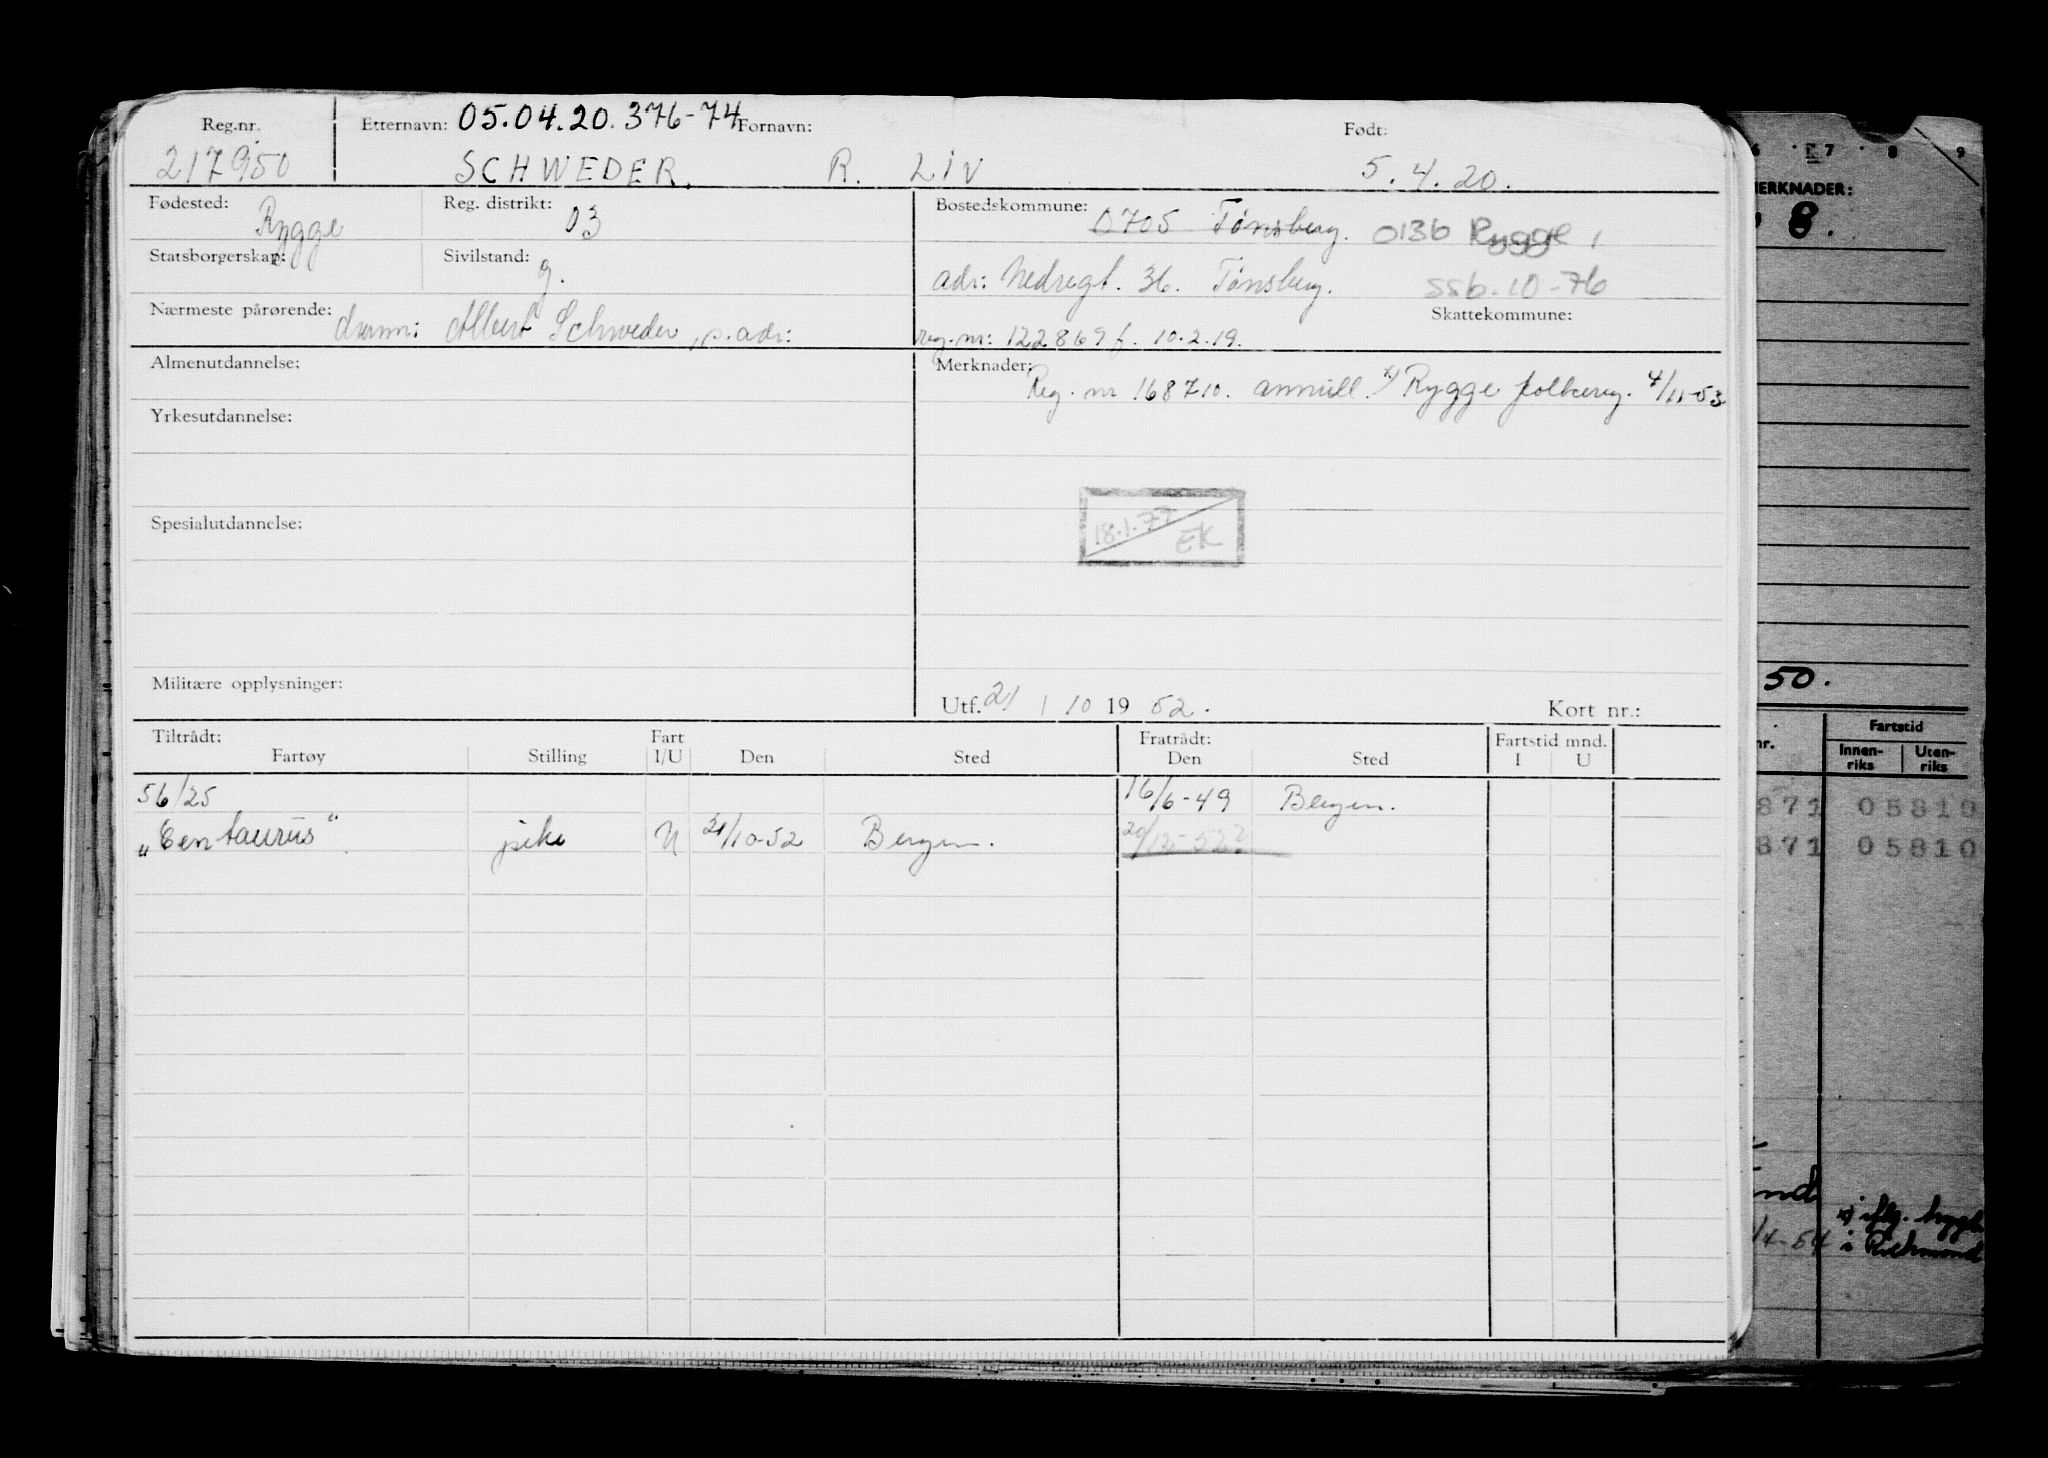 Reg.nr. Etternavn: 05.04.20.376-74 Fornavn: Født:
217950 SCHWEDER. R. LIV 5.4.20.
Fødested: Rygge Reg. distrikt: 03 Bostedskommune: 0705 Tønsberg. 0136 Rygge,
Statsborgerskap: Sivilstand: g. adr: Nedregt. 36. Tønsberg. SSb. 10-76
Skattekommune:
Nærmeste pårørende: Albert Schweder, s. adr: reg.nr: 122869 f. 10.2.19.
Almenutdannelse: Merknader: Reg. nr 168710. annull. x) Rygge folkereg. 4/11-53
Yrkesutdannelse:
18.1.77
EK
Spesialutdannelse:
Militære opplysninger:
Utf. 21 / 10 19 52. Kort nr.:
Tiltrådt: Fart Fratrådt: Fartstid mnd.
Fartøy Stilling I/U Den Sted Den Sted I U
56/25 16/6-49 Bergen.
"Centaurus" pike U 21/10-52 Bergen. 20/12-52?
6 7 8 9
MERKNADER:
8.
50.
nr. Fartstid
Innen-riks Uten-riks
871 05810
871 05810
/4-54 i Richmond